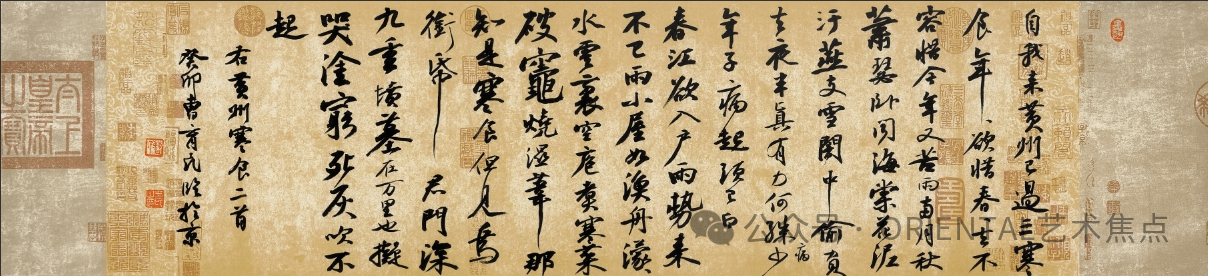 自我来黄州已過三寒
食年、欲惜春去不
容惜今年又苦雨兩月秋
蕭瑟卧闻海棠花泥
汙燕支雪闇中偷負
去夜半真有力何殊少病
年子病起頭已白
春江欲入户雨勢来
不已雨小屋如漁舟濛
水雲裏空庖煮寒菜
破竈燒湿葦那
知是寒食但見烏
銜帋君門深
九重墳墓在万里也擬
哭塗窮死灰吹不
起
右黄州寒食二首
癸卯曹育民临於京
公众号 · ORIENTAL艺术焦点